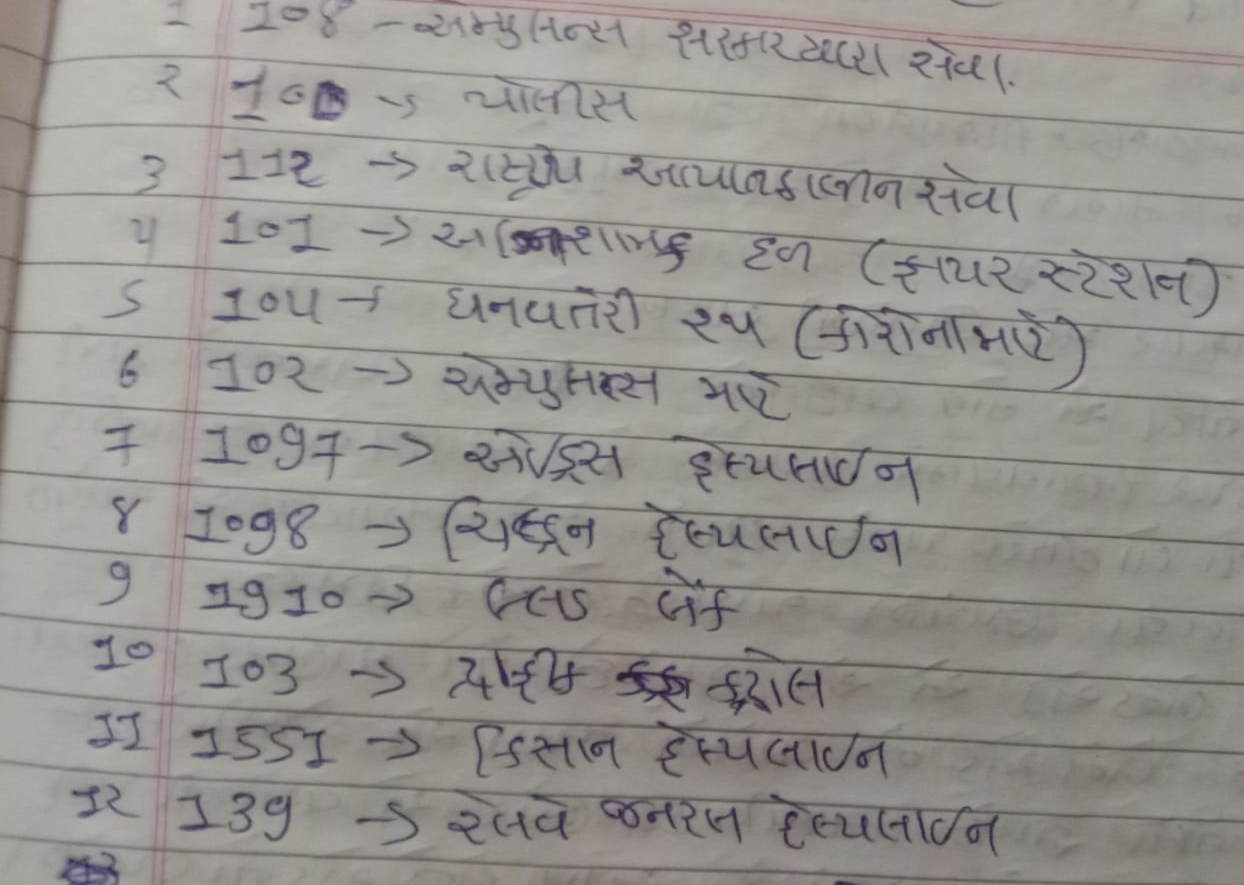 1 108 - એમ્બ્યુલન્સ સરકાર દ્વારા સેવા.
૨ 100 → પોલીસ
3 112 → રાષ્ટ્રીય આપાતકાલીન સેવા
4 101 → અગ્નિશામક દળ (ફાયર સ્ટેશન)
5 104 → ધનવતેરી રથ (કોરોના માટે)
6 102 → એમ્બ્યુલન્સ માટે
7 1097 → એઈડ્સ હેલ્પલાઈન
8 1098 → ચિલ્ડ્રન હેલ્પલાઈન
9 1910 → બ્લડ બેંક
10 103 → ટ્રાફીક કંટ્રોલ
11 1551 → કિસાન હેલ્પલાઈન
12 139 → રેલવે જનરલ હેલ્પલાઈન